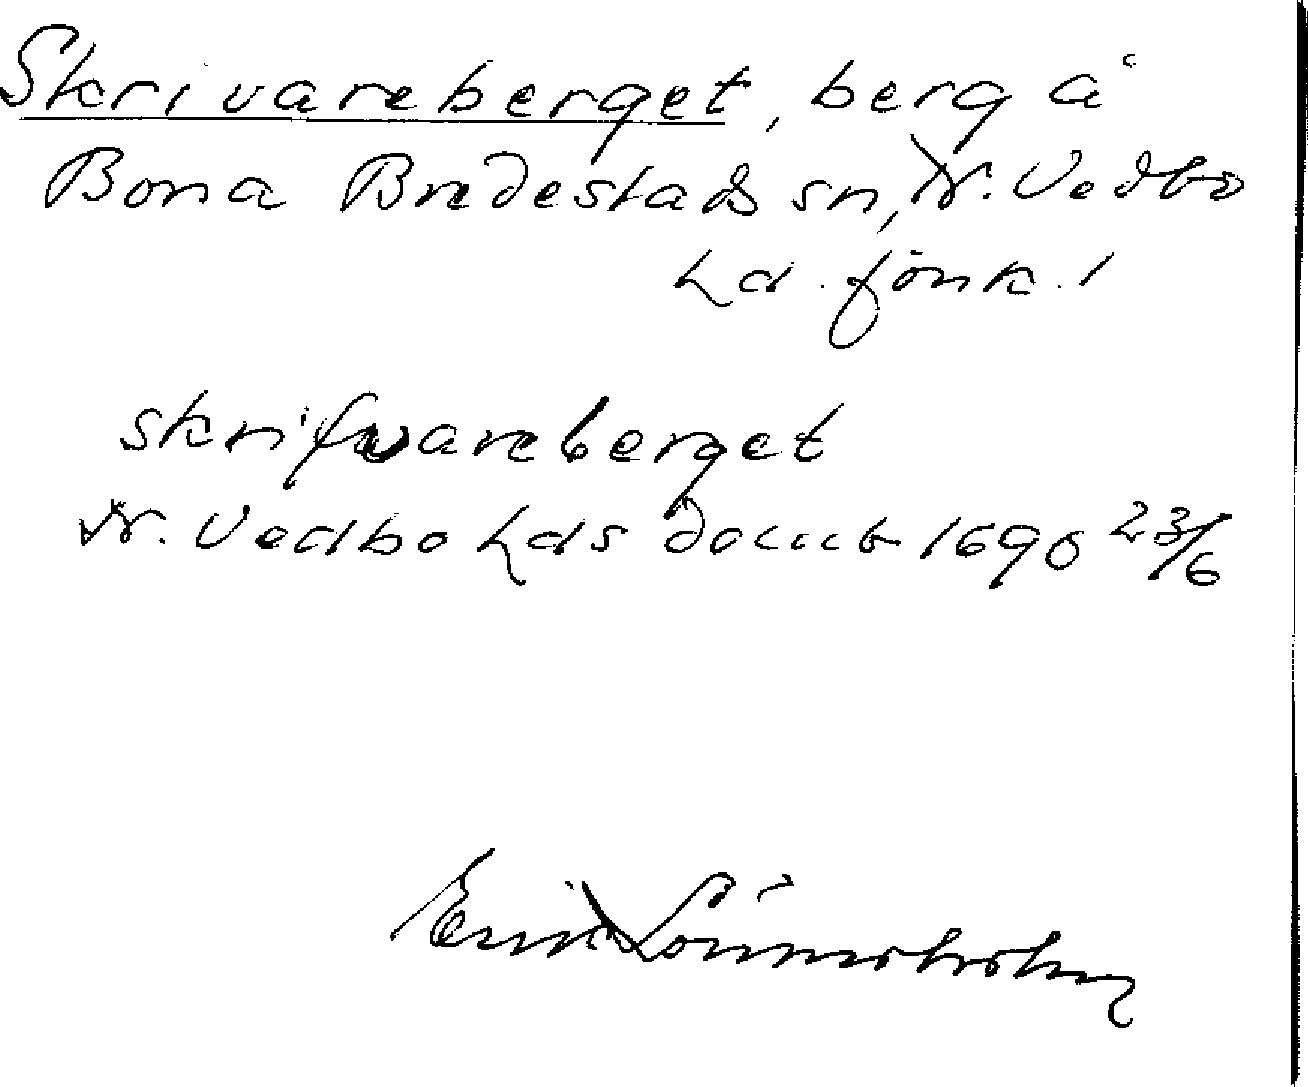 Skrivareberget, berg å
Bona Bredestads sn, N. Vedbo
hd. Jönk. l
skrifwareberget
N. Vedbo hds domb 1690 23/6
Erik Lönnerholm